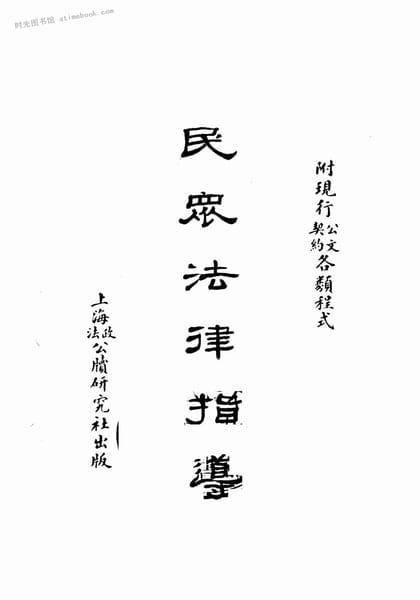 时光图书馆 atimebook.com
附現行公文契約各類程式
民眾法律指導
上海法政公牘研究社出版